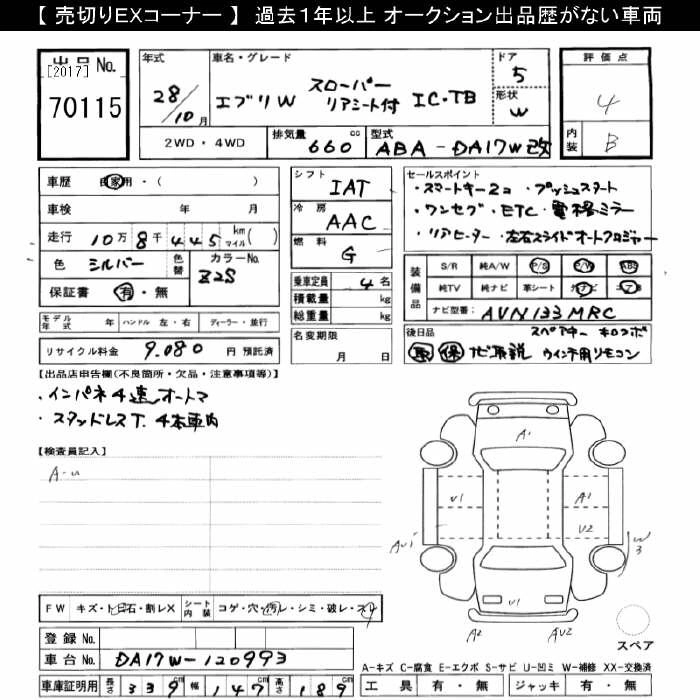 【 売切りEXコーナー 】 過去1年以上 オークション出品歴がない車両
出品 No.
[2017]
70115
年式
28/10月
車名・グレード
エブリW スローパー リアシート付 IC・TB
ドア
5
形状
W
評価点
4
内装
B
2WD・4WD
排気量
660 cc
型式
ABA-DA17W改
車歴
自家用・( )
車検 年 月
走行 10万 8千 445 km マイル( )
色
シルバー
色替
カラーNo.
Z2S
保証書 有・無
シフト
IAT
冷房
AAC
燃料
G
乗車定員 4名
積載量 kg
総重量 kg
セールスポイント
・スマートキー2コ ・プッシュスタート
・ワンセグ ・ETC ・電格ミラー
・リアヒーター ・左右スライドオートクロージャー
装備品
S/R 純A/W P/S P/W ABS
純TV 純ナビ 革シート カナビ エアB
ナビ型番: AVN133MRC
モデル年式 年 ハンドル 左・右 ディーラー・並行
リサイクル料金 9.080 円 預託済
名変期限
月 日
後日品
スペアキー
取 保 ウインチ用リモコン
【出品店申告欄(不良箇所・欠品・注意事項等)】
・インパネ4速オートマ
・スタッドレスT. 4本車内
【検査員記入】
A-u
A1
U1
A1
U2
AU1
W3
U1
A2
AU2
スペア
FW キズ・トビ石・割レX シート内装 コゲ・穴・汚レ・シミ・破レ・スレ
登録 No.
車台 No. DA17W-120993
車庫証明用 長さ 339cm 幅 147cm 高さ 189cm
A-キズ C-腐食 E-エクボ S-サビ U-凹ミ W-補修 XX-交換済
工具 有・無 ジャッキ 有・無